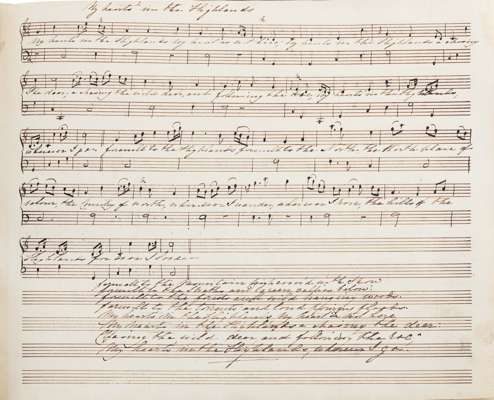 My heart's in the Highlands
My heart's in the Highlands my heart is not here, My hearts in the Highlands a chasing
The deer, a chasing the wild deer, and following the roe, My hearts in the Highlands
wherever I go farewell to the Highlands farewell to the North the Birth place of
valour, the Country of worth, wherever I wander, wherever I rove, the hills of the
Highlands for ever I love
farewell to the Mountains high cover'd with Snow
farewell to the Straths and Green vallies below
farewell to the forests and wild hanging woods
farewell to the torrents and
My hearts in the Highlands My heart is not here
My hearts in the Highlands a chasing the deer
Chasing the wild deer and following the roe
My hearts in the Highlands, wherever I go